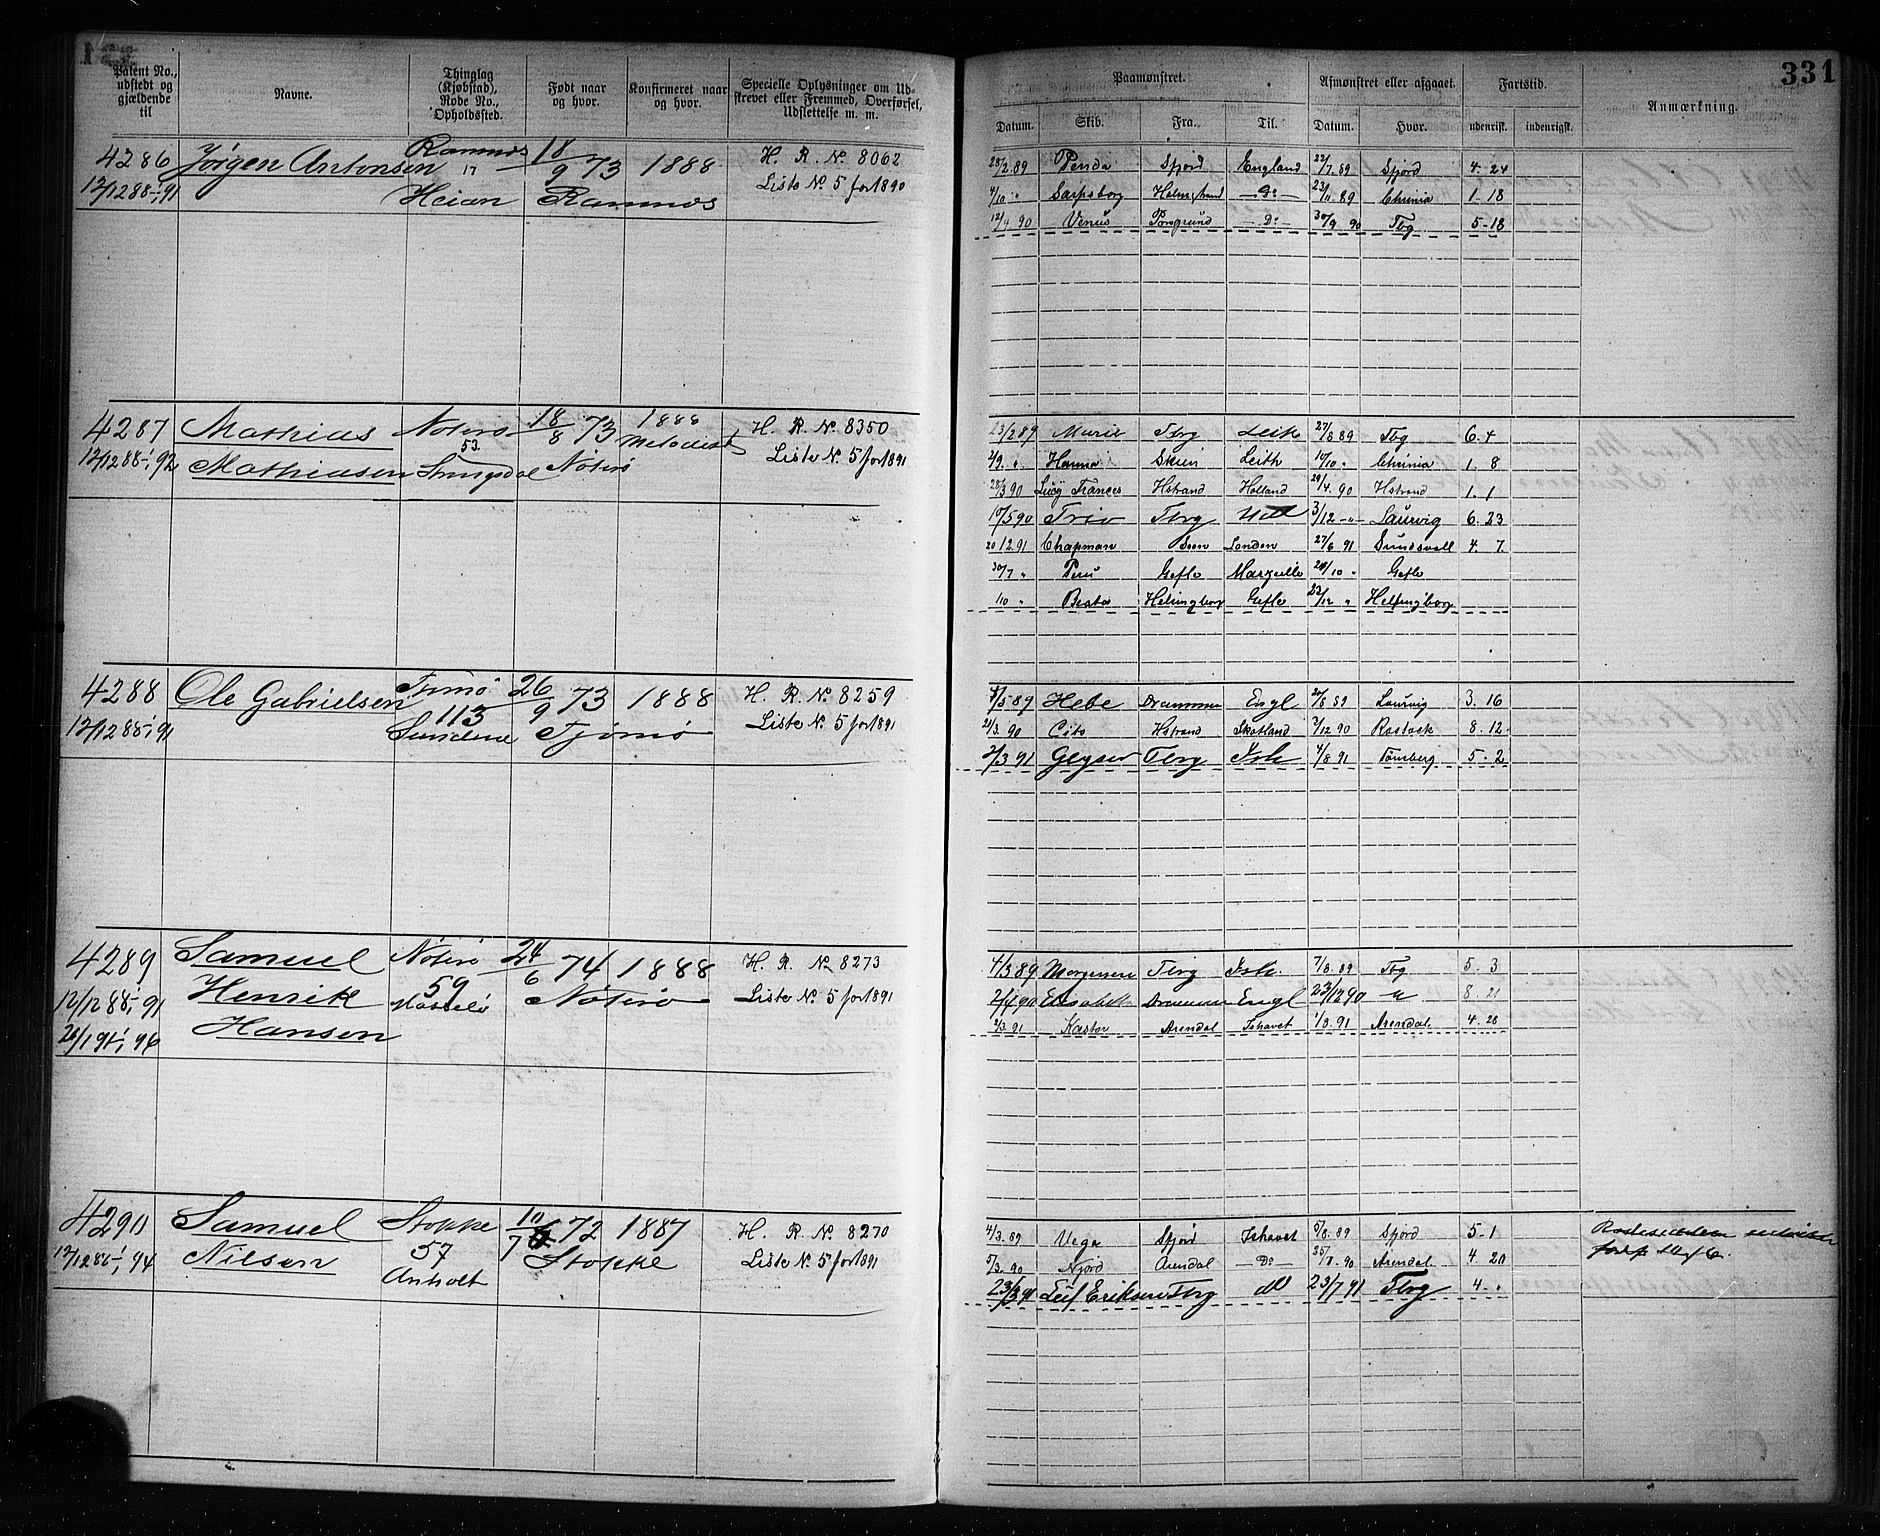 331
Patent No., udstedt og gjældende til
Navne.
Thinglag (Kjøbstad), Rode No., Opholdssted.
Født naar og hvor.
Konfirmeret naar og hvor.
Specielle Oplysninger om Udstrevet eller Fremmed, Overførsel, Udslettelse m. m.
Paamønstret.
Afmønstret eller afgaaet.
Fartstid.
Anmærkning.
Datum. Skib. Fra. Til. Datum. Hvor. udenrigs. indenrigsk.
4286 Jørgen Antonsen Ramnes 18/9 73 1888 H. R. No 8062
12/12 88-, 91 17 Heian Ramnes Liste No 5 for 1890
28/2.89 Penda Sfjord England 22/7.89 Sfjord 4-24
4/10 " Sarpsborg Holmestrand -Do- 23/11.89 Chrinia 1-18
12/4 90 Venus Porsgrund -Do- 30/9 90 Tbg 5-18
4287 Mathias Nøterø 18/8 73 1888 H. R. No 8350
12/12 88-, 92 Mathiasen 53. Nøterø Metodist Liste No 5 for 1891
23/2 89 Marie Tbg Leith 27/8 89 Tbg 6. 4
2/9. " Hanna Skien Leith 10/10 " Chrinia 1. 8
28/3 90 Lucy Frances Hstrand Holland 29/4. 90 Hstrand 1. 1
10/5 90 Trio Tbg 3/12 -"- Laurvig 6. 23
20 12.91 Chapman Soon London 27/6 91 Sundsvall 4. 7.
30/7 " Peru Gefle Marseille 28/10 " Gefle
1/10 " Beata Helsingborg Gefle 23/12 " Helsingborg
4288 Ole Gabrielsen Tjømø 26/9 73 1888 H. R. No 8259
12/12 88-, 91 113 Sundene Tjømø Liste No 5 for 1891
Hebe Drammen Engl 20/8 89 Laurvig 3. 16
21/3. 90 Cito Hstrand Skotland 7/12 90 Rostock 8. 12.
2/3 91 Geyser Tbrg Ish 4/8 91 Tønsberg 5-2
4289 Samuel Henrik Hansen Nøterø 24/6 74 1888 H. R. No 8273
12/12 88-, 91 59 Nøterø Liste No 5 for 1891
4/3 89 Morgenen Tbrg Ish. 7/8. 89 Tbg 5. 3
2/4 90 Elisabeth Drammen Engl 23/12 90 8. 21
2/3. 91 Kastor Arendal Ishavet 1/8. 91 Arendal 4. 28
4290 Samuel Nilsen Stokke 10/7 72 1887 H. R. No 8270
12/12 88-, 94 57 Anholt Stokke Liste No 5 for 1891
4/3. 89 Vega Sfjord Ishavet 5/8. 89 Sfjord 5-1
5/3. 90 Njord Arendal -Do- 25/7. 90 Arendal 4. 20
23/3 91 Leif Eriksen Tbrg 23/7 91 Tbrg 4. "